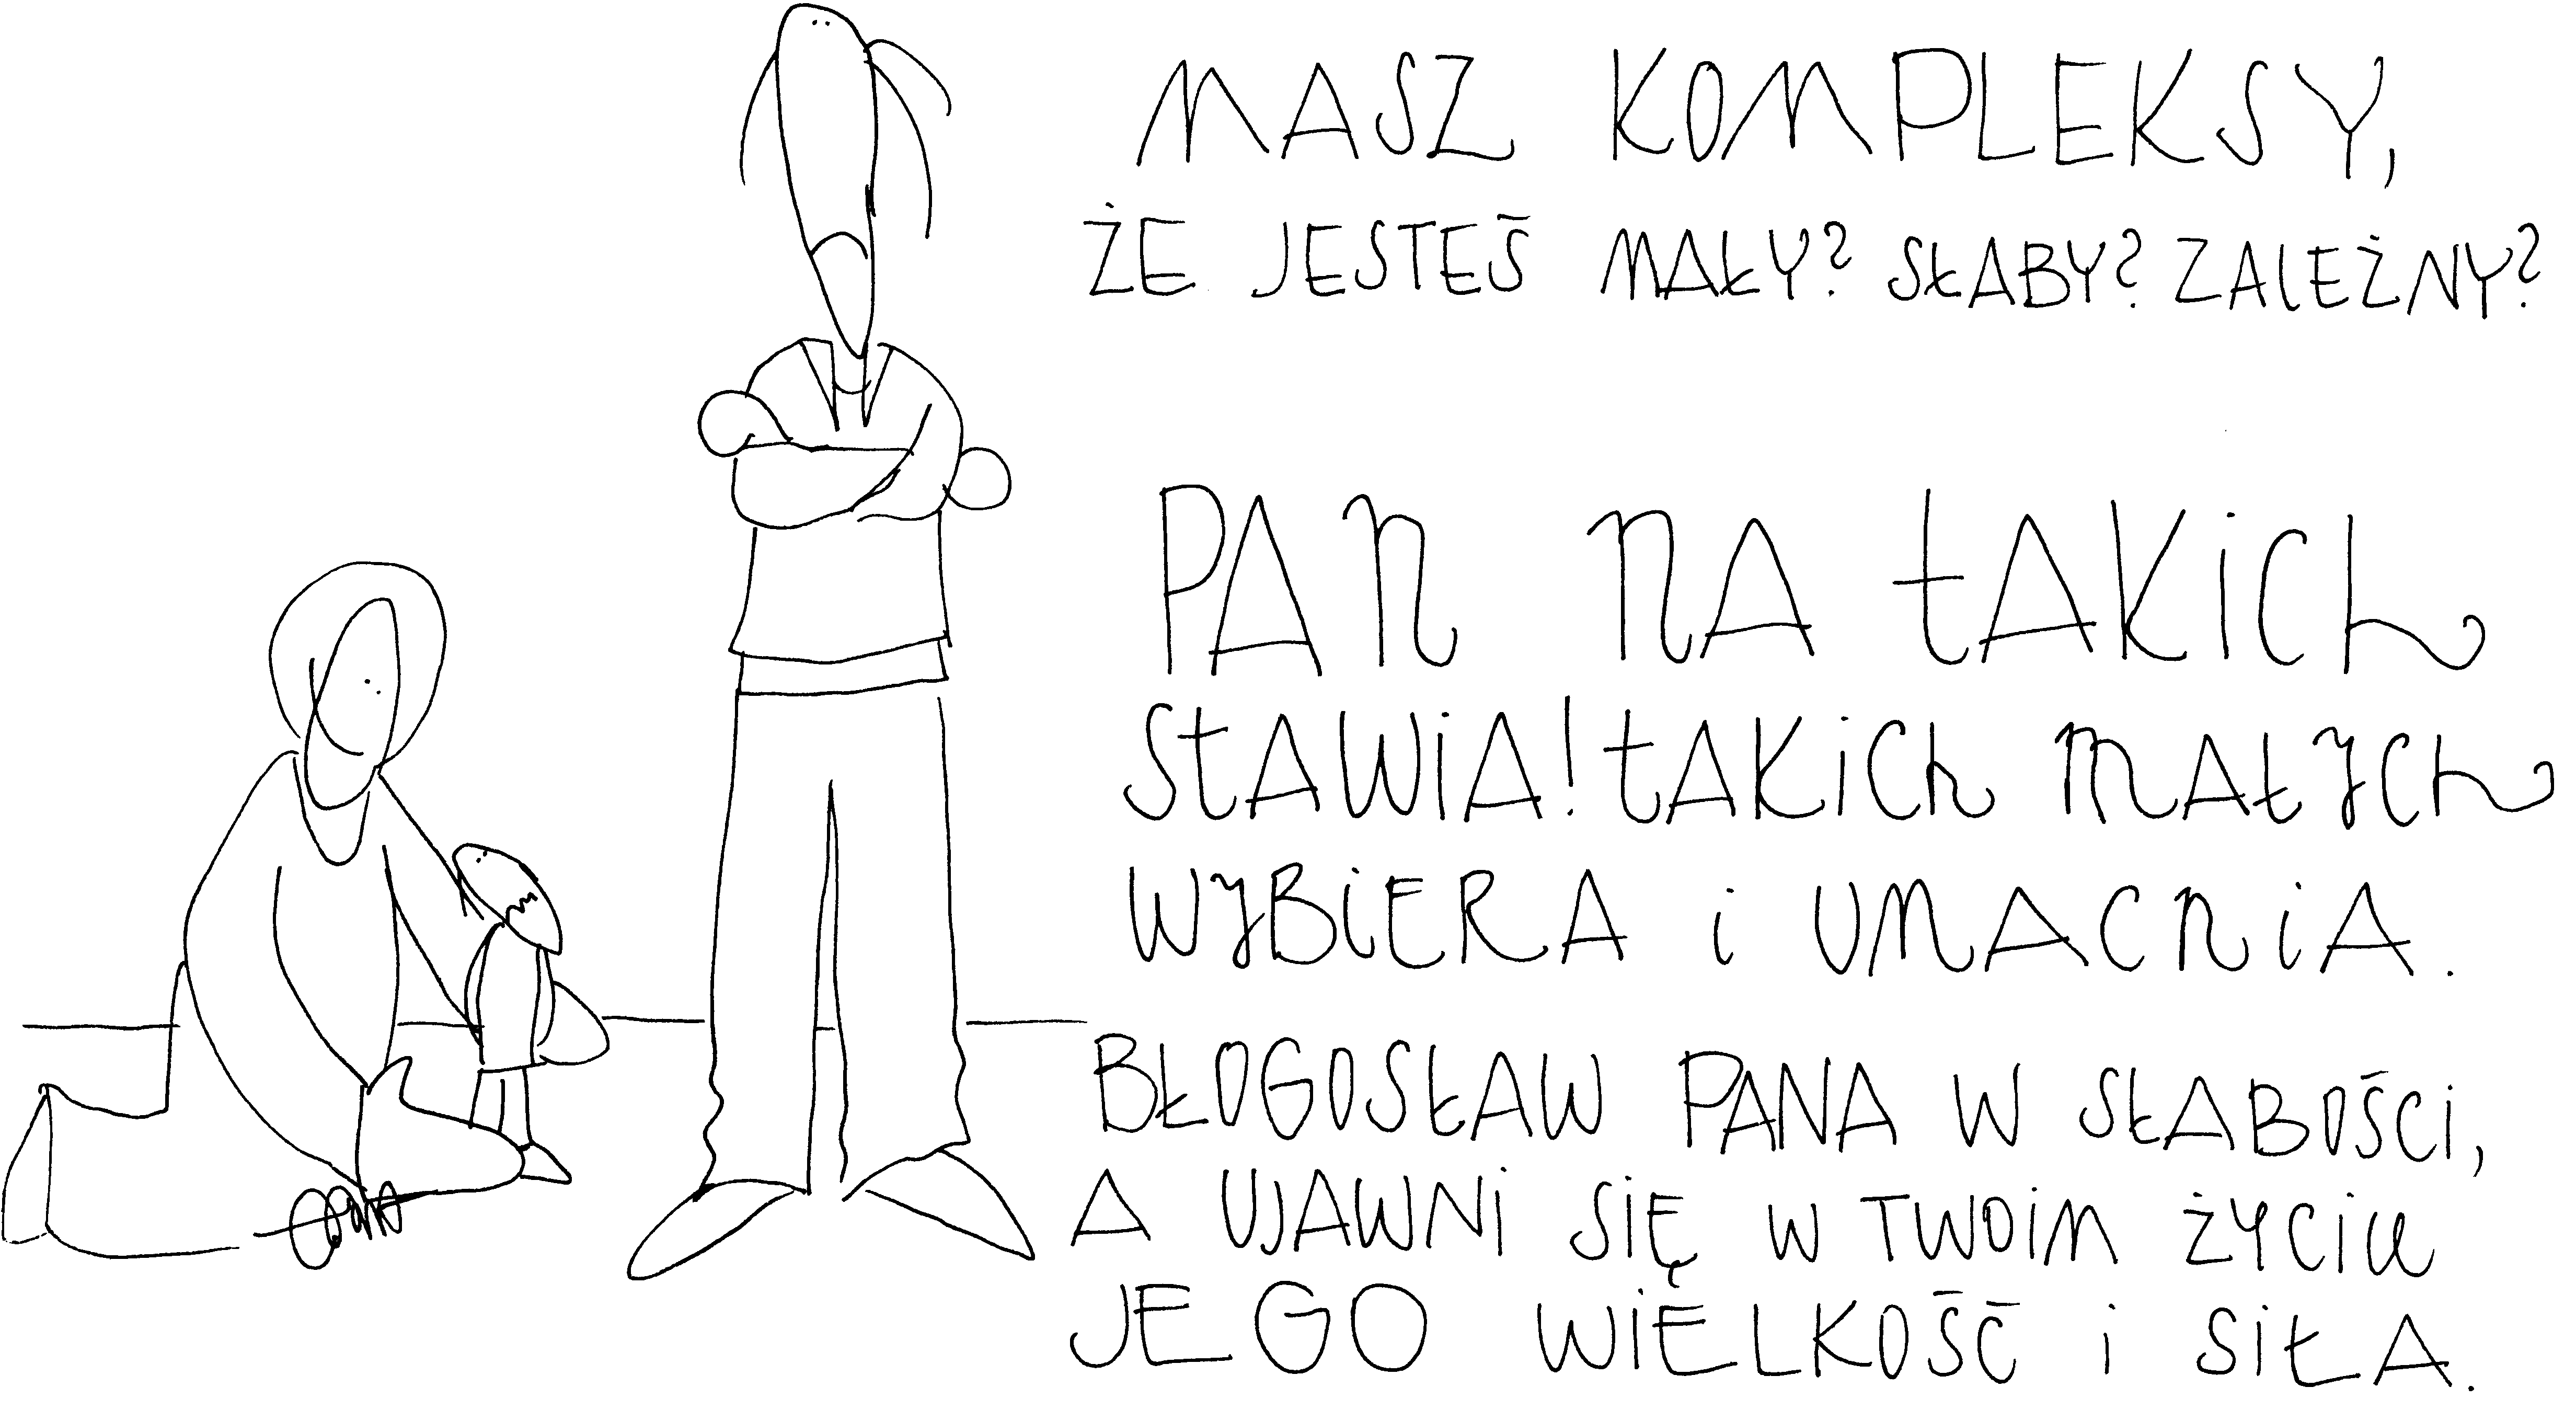 MASZ KOMPLEKSY,
ŻE JESTEŚ MAŁY? SŁABY? ZALEŻNY?
PAN NA TAKICH
STAWIA! TAKICH MAŁYCH
WYBIERA i UMACNIA.
BŁOGOSŁAW PANA W SŁABOŚCI,
A UJAWNI SIĘ W TWOIM ŻYCIU
JEGO WIELKOŚĆ i SIŁA.